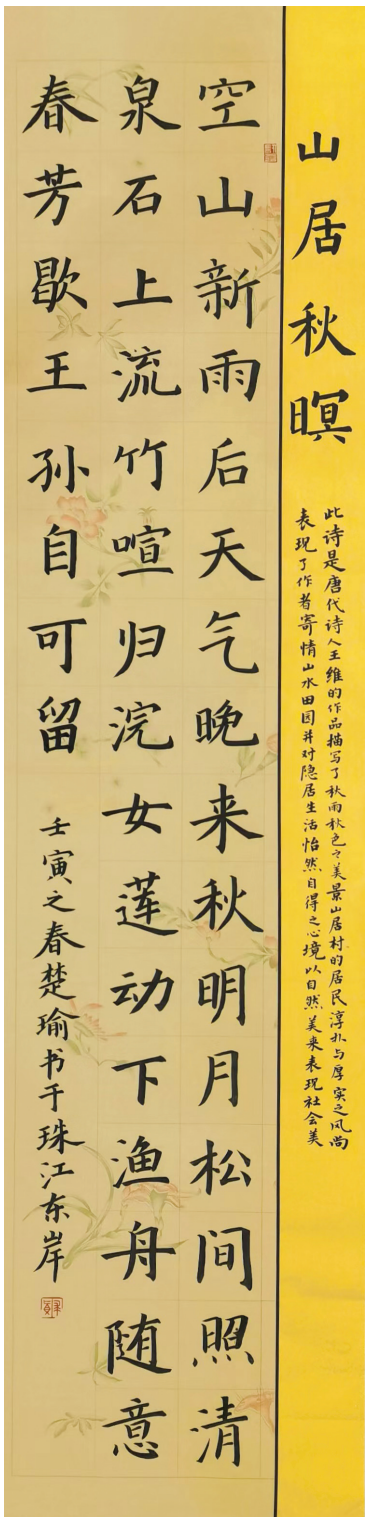 山居秋暝
此诗是唐代诗人王维的作品描写了秋雨秋色之美景山居村的居民淳朴与厚实之风尚
表现了作者寄情山水田园并对隐居生活怡然自得之心境以自然美来表现社会美
空山新雨后天气晚来秋明月松间照清
泉石上流竹喧归浣女莲动下渔舟随意
春芳歇王孙自可留
壬寅之春楚瑜书于珠江东岸